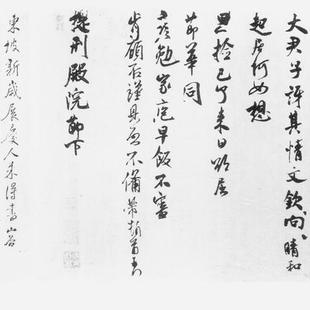 大君子誨其情文欽向晴和
起居何如想
旦撿已了來日欲屈
節華同
家庖早飯不審
肯顧否謹具
不備
頓首
提刑殿院節下
東坡新歲展慶人來得書